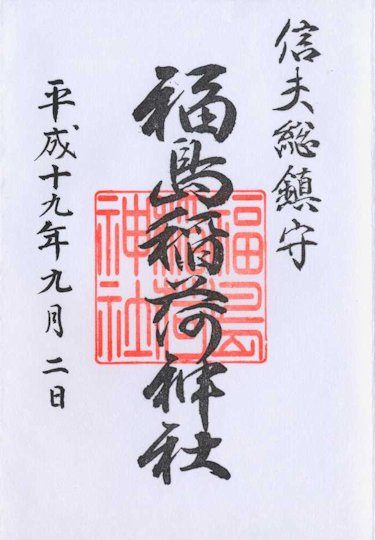 信夫総鎮守
福島稲荷神社
平成十九年九月二日
福島
稲荷
神社